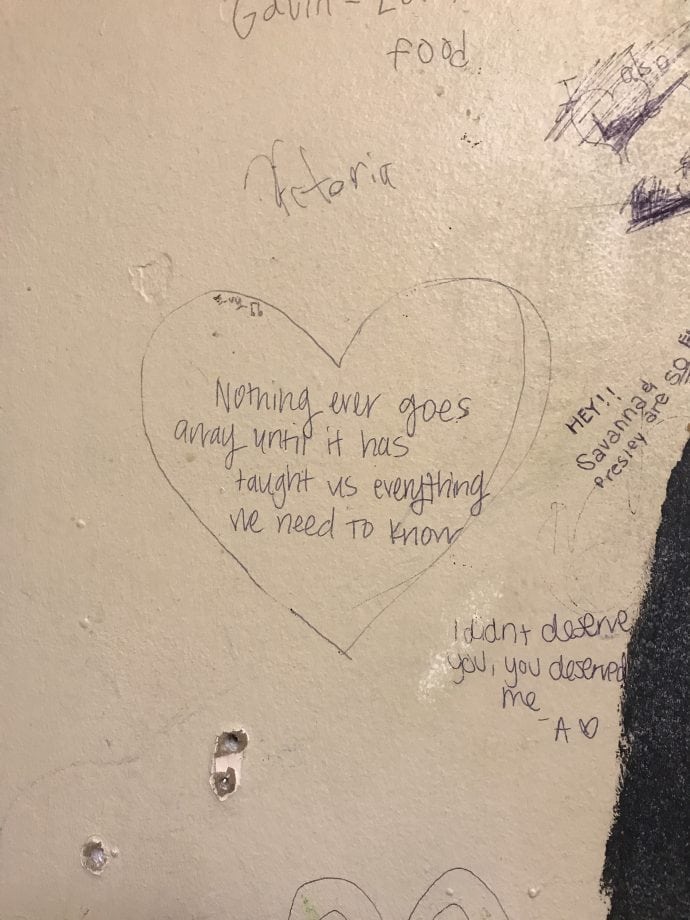 Gavin -
food
Victoria
Nothing ever goes
away until it has
taught us everything
we need to know
HEY!!
Savanna &
Presley are SO
I didnt deserve
you, you deserved
me
-A ♡